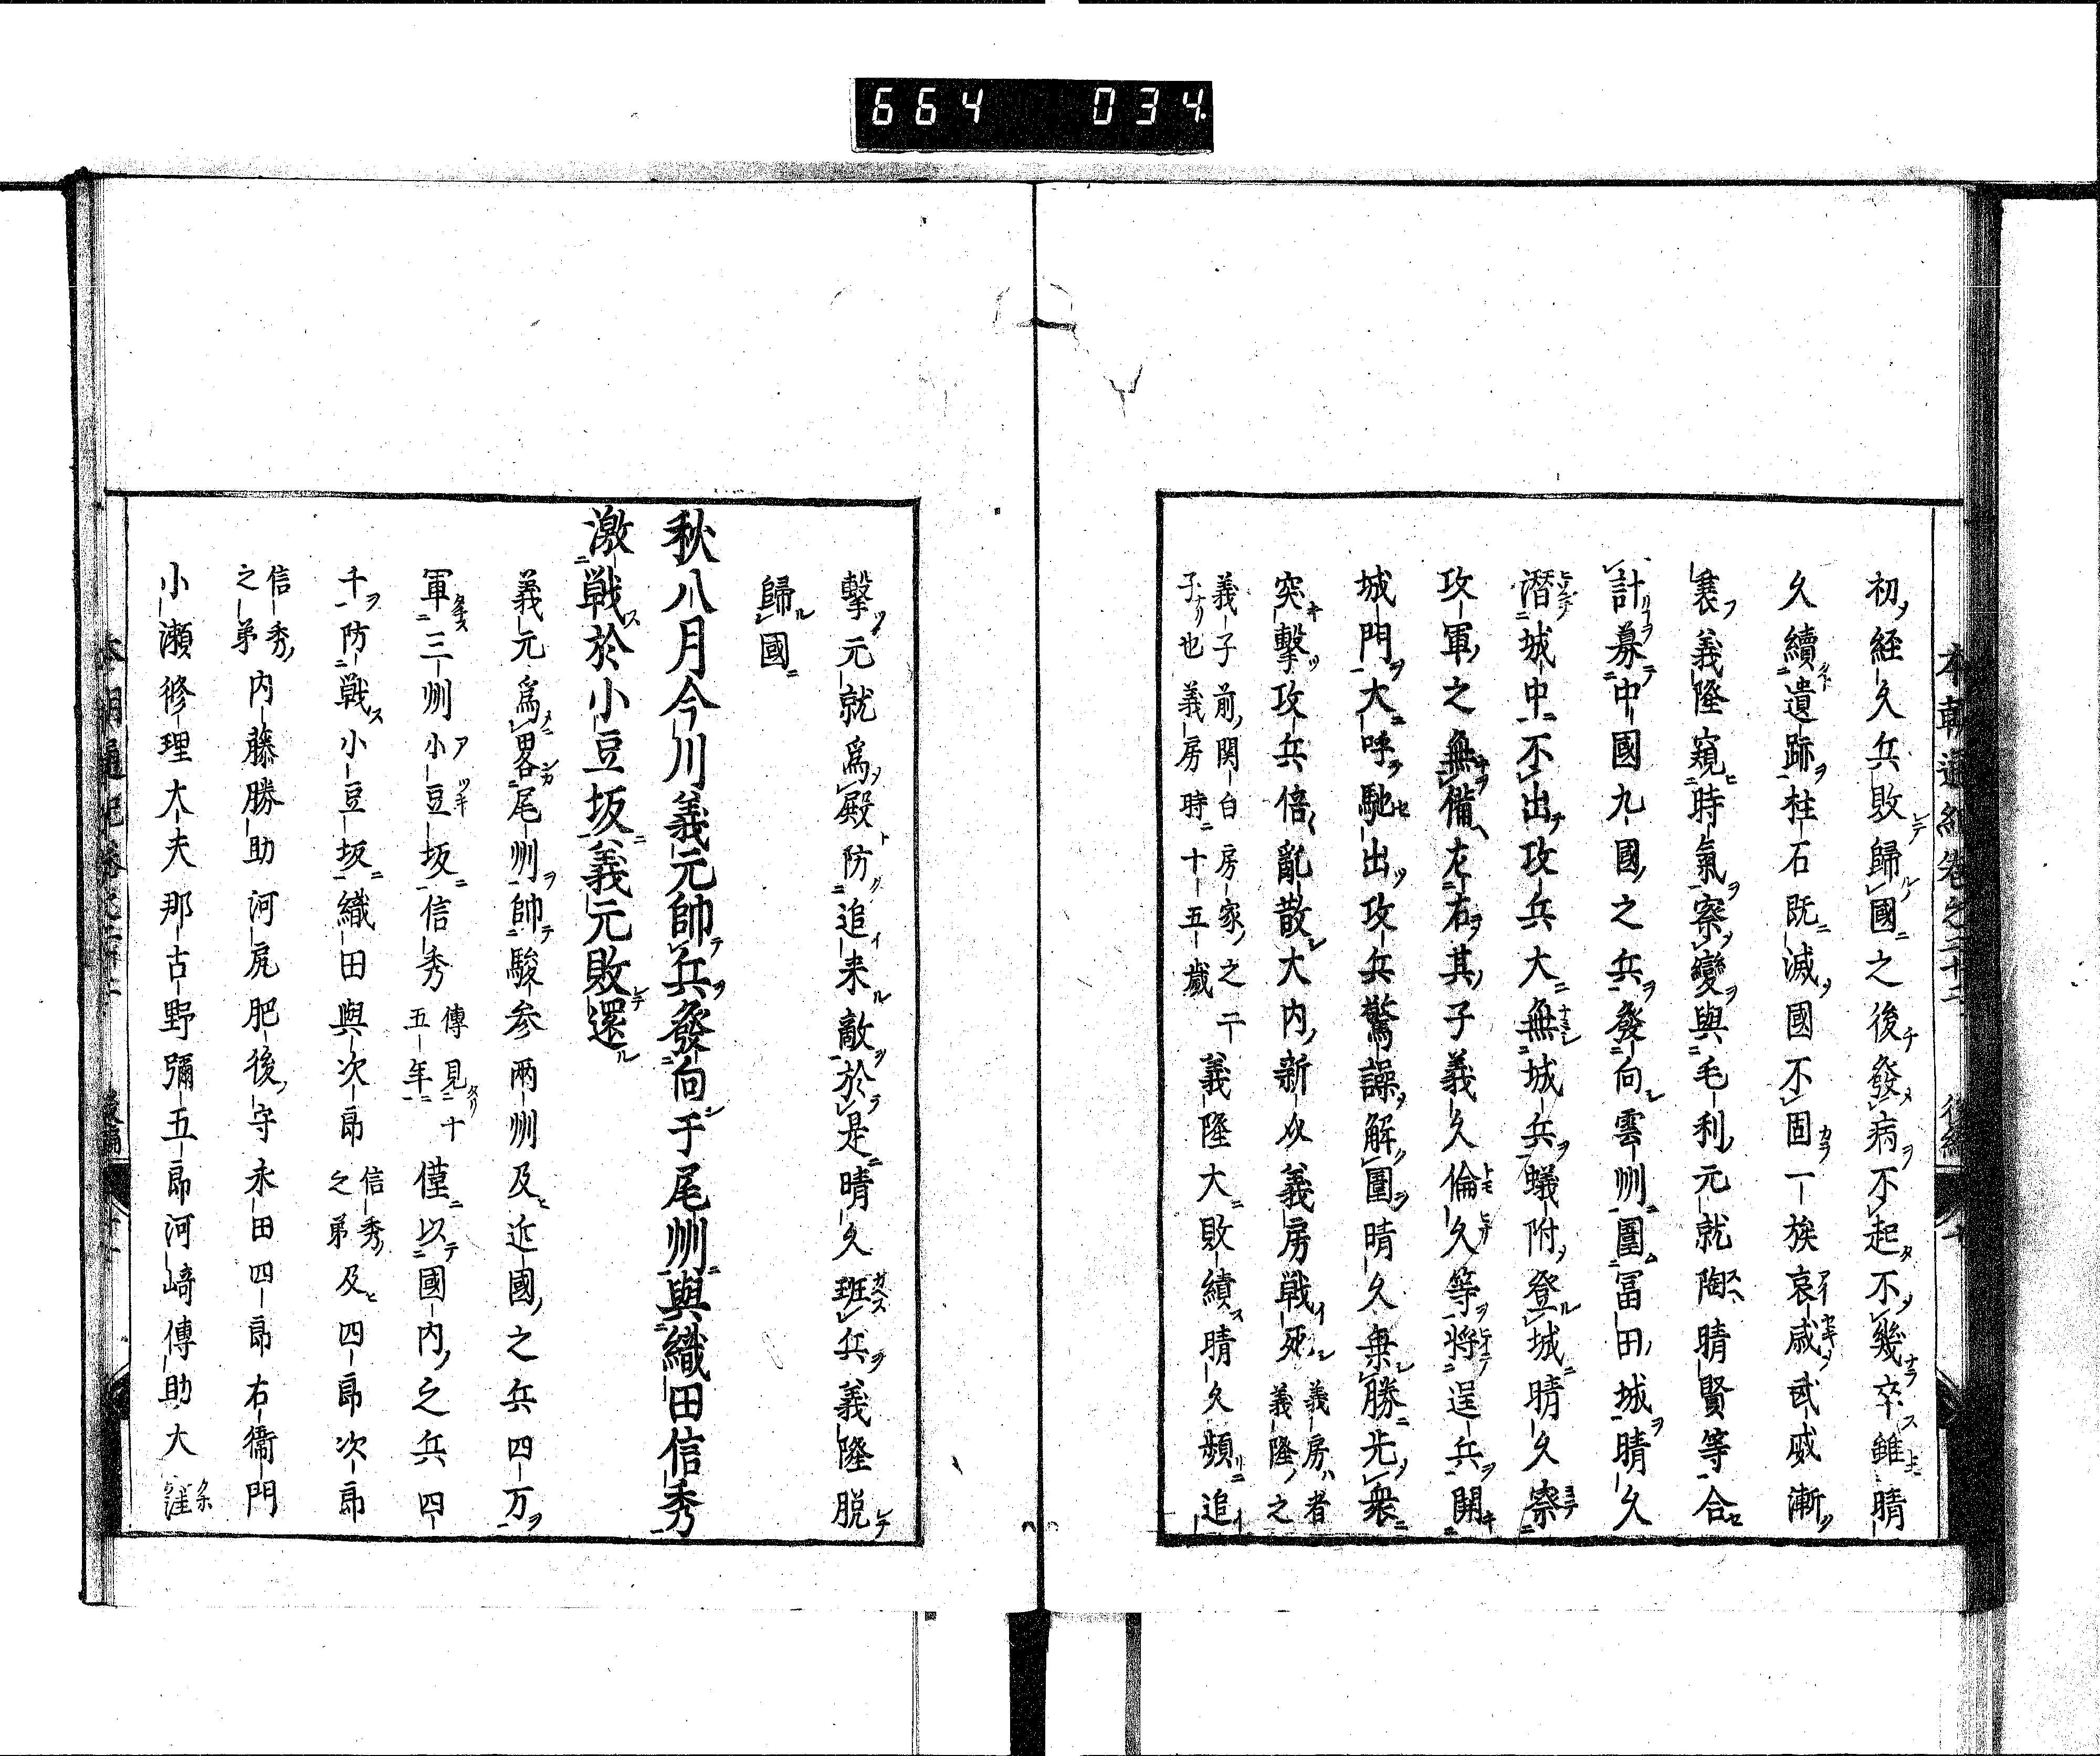 664 034
初経久兵敗歸國之後發病不起不幾卒雖晴
久續遺跡柱石既滅國不固一族哀戚武威漸
襄義隆窺時氣察變與毛利元就陶晴賢等合
計募中國九國之兵發向雲州圍冨田城晴久
潜城中不出攻兵大無城兵蟻附登城晴久禦
攻軍之無備左右其子義久倫久等將逞兵開
城門大呼馳出攻兵驚譟解圍晴久乗勝先衆
突擊攻兵倍亂散大内新介義房戰死義房者義隆之
義子前関白房家之子也義房時十五歳義隆大敗績晴久頻追
擊元就爲殿防追来敵於是晴久班兵義隆脱
歸國
秋八月今川義元帥兵發向于尾州與織田信秀
激戰於小豆坂義元敗還
義元爲畧尾州帥駿参兩州及近國之兵四万
軍三州小豆坂信秀傳見十五年僅以國内之兵四
千防戰小豆坂織田與次郎信秀之弟及四郎次郎
信秀之弟内藤勝助河尻肥後守永田四郎右衞門
小瀬修理大夫那古野彌五郎河崎傳助大窪